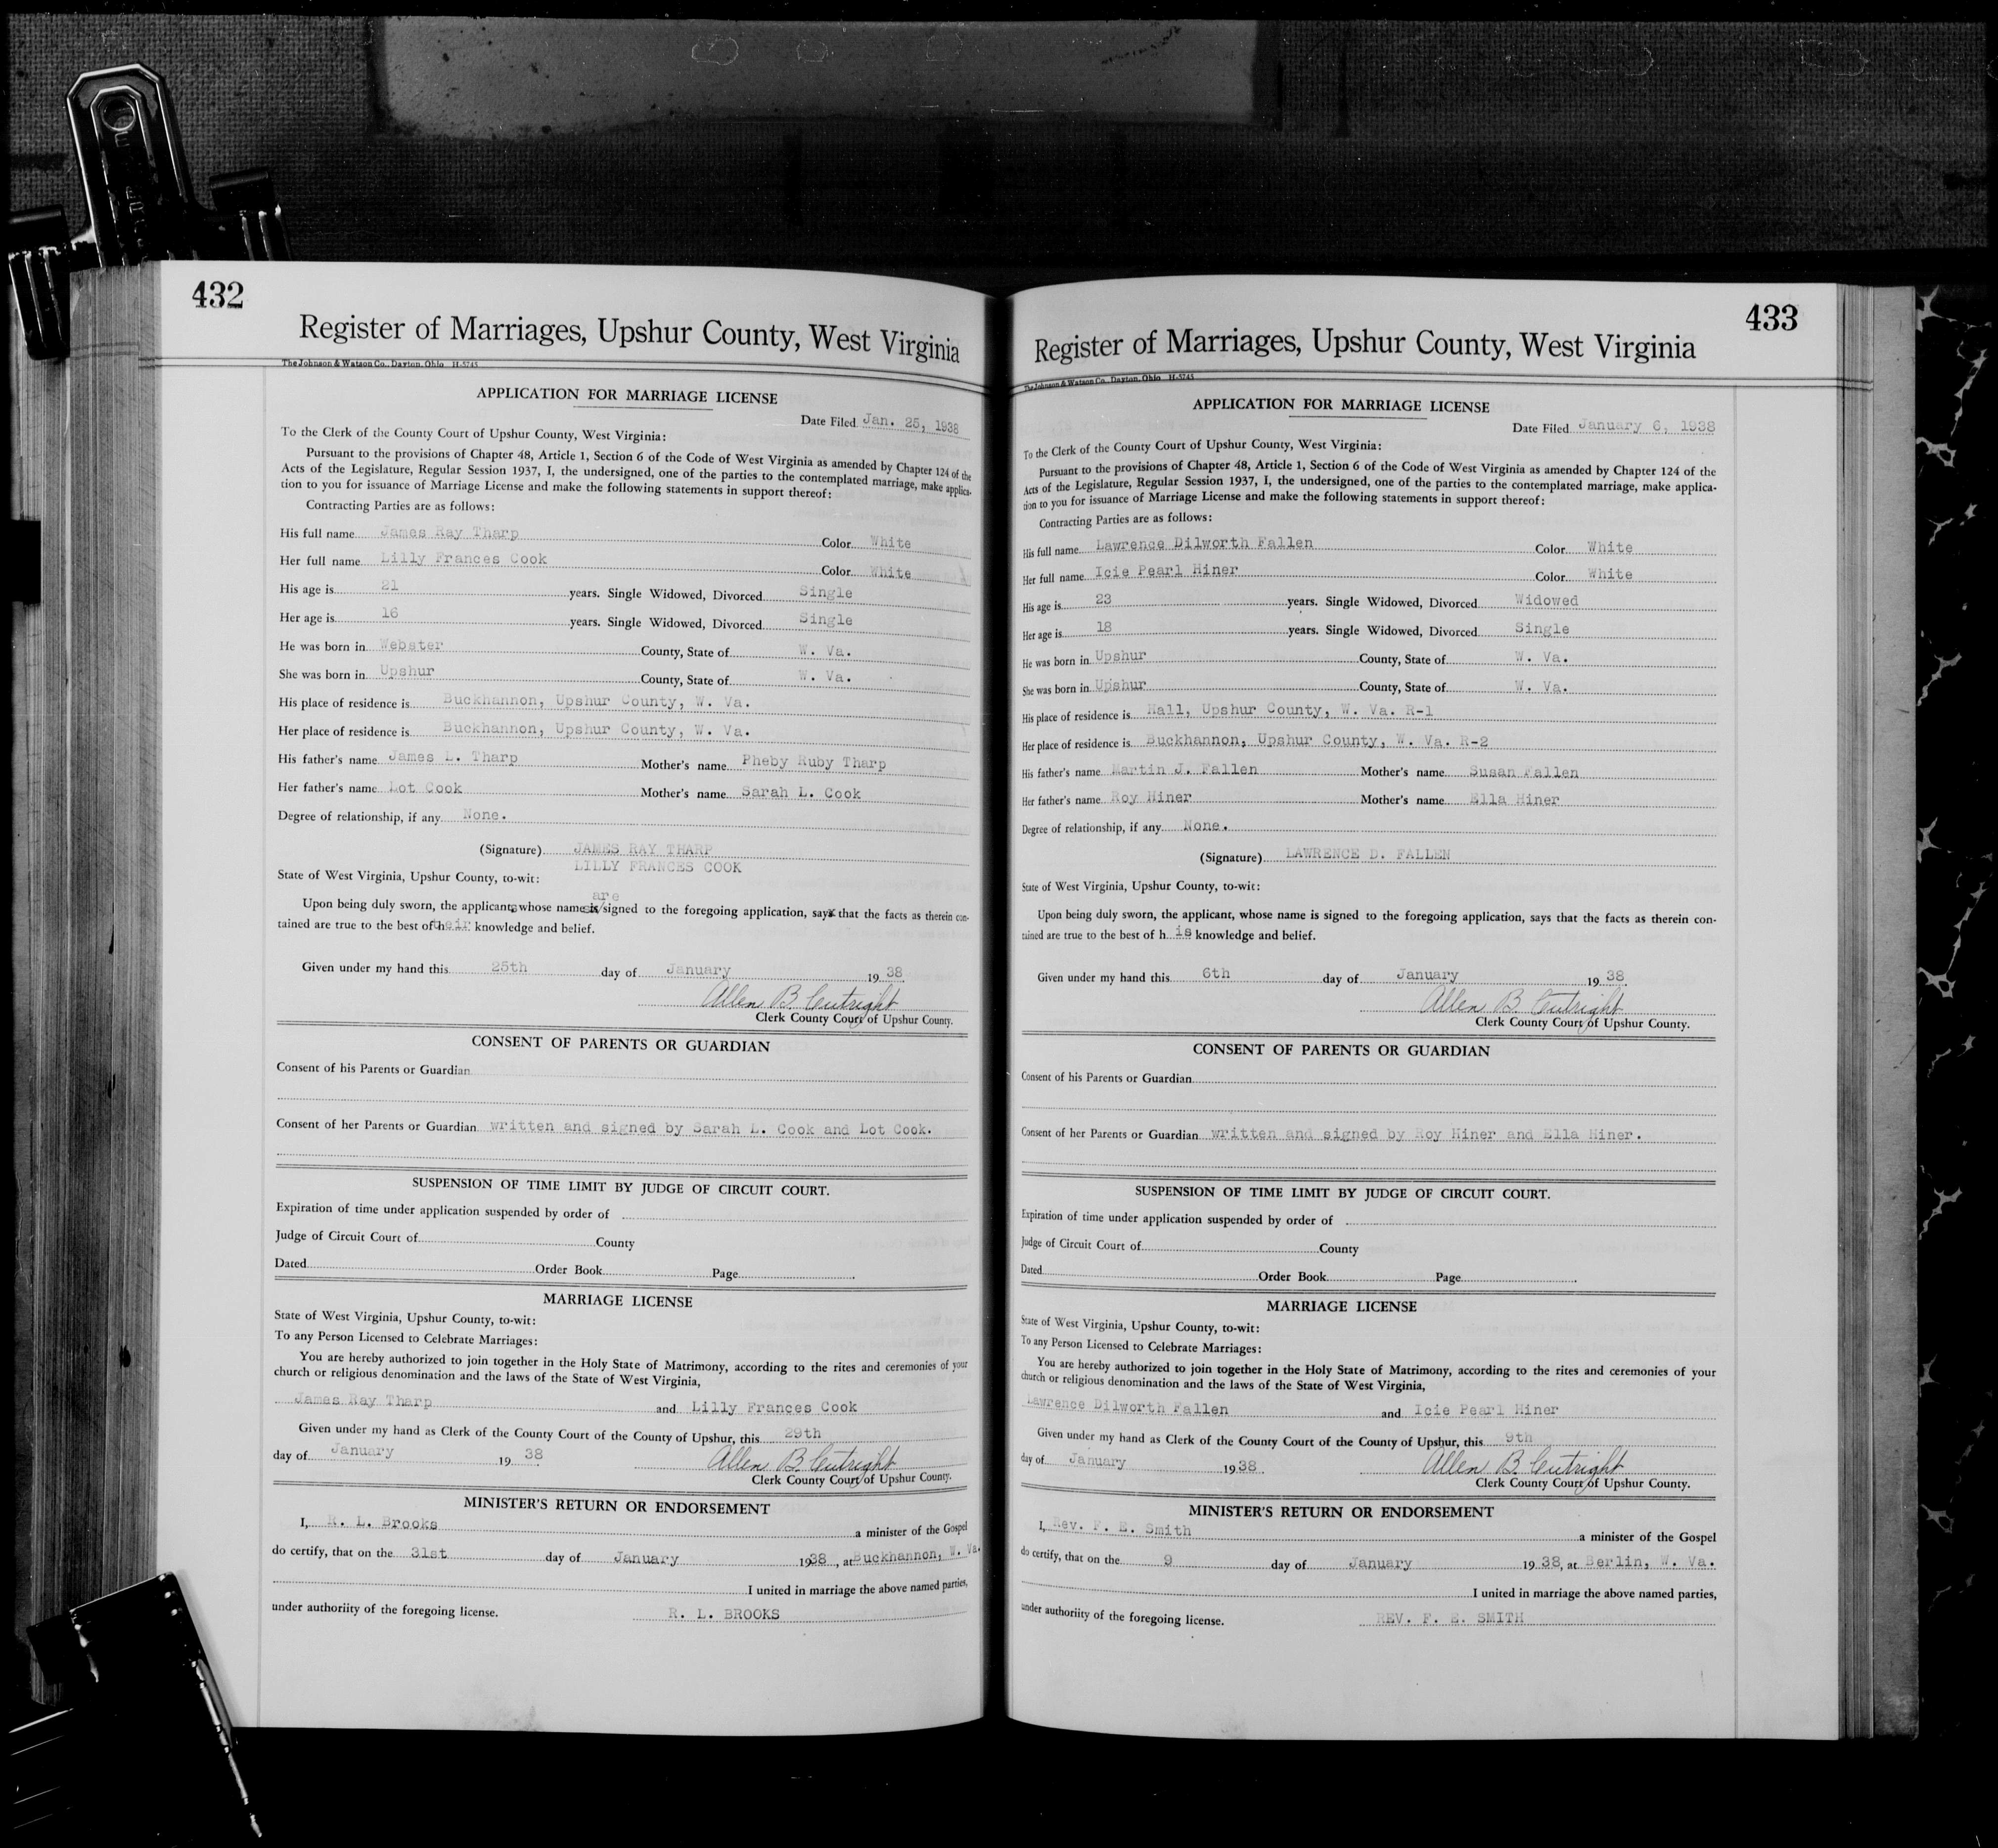 432
Register of Marriages, Upshur County, West Virginia
The Johnson & Watson Co., Dayton, Ohio H-5745
APPLICATION FOR MARRIAGE LICENSE
Date Filed Jan. 25, 1938
To the Clerk of the County Court of Upshur County, West Virginia:
Pursuant to the provisions of Chapter 48, Article 1, Section 6 of the Code of West Virginia as amended by Chapter 124 of the
Acts of the Legislature, Regular Session 1937, I, the undersigned, one of the parties to the contemplated marriage, make applica-
tion to you for issuance of Marriage License and make the following statements in support thereof:
Contracting Parties are as follows:
His full name James Ray Tharp Color White
Her full name Lilly Frances Cook Color White
His age is 21 years. Single Widowed, Divorced Single
Her age is 16 years. Single Widowed, Divorced Single
He was born in Webster County, State of W. Va.
She was born in Upshur County, State of W. Va.
His place of residence is Buckhannon, Upshur County, W. Va.
Her place of residence is Buckhannon, Upshur County, W. Va.
His father's name James L. Tharp Mother's name Pheby Ruby Tharp
Her father's name Lot Cook Mother's name Sarah L. Cook
Degree of relationship, if any None.
(Signature) JAMES RAY THARP
LILLY FRANCES COOK
State of West Virginia, Upshur County, to-wit:
are
Upon being duly sworn, the applicants whose names is/signed to the foregoing application, says that the facts as therein con-
tained are true to the best of their knowledge and belief.
Given under my hand this 25th day of January 19 38
Allen B. Cutright
Clerk County Court of Upshur County.
CONSENT OF PARENTS OR GUARDIAN
Consent of his Parents or Guardian
Consent of her Parents or Guardian written and signed by Sarah L. Cook and Lot Cook.
SUSPENSION OF TIME LIMIT BY JUDGE OF CIRCUIT COURT.
Expiration of time under application suspended by order of
Judge of Circuit Court of County
Dated Order Book Page
MARRIAGE LICENSE
State of West Virginia, Upshur County, to-wit:
To any Person Licensed to Celebrate Marriages:
You are hereby authorized to join together in the Holy State of Matrimony, according to the rites and ceremonies of your
church or religious denomination and the laws of the State of West Virginia,
James Ray Tharp and Lilly Frances Cook
Given under my hand as Clerk of the County Court of the County of Upshur, this 29th
day of January 19 38 Allen B. Cutright
Clerk County Court of Upshur County.
MINISTER'S RETURN OR ENDORSEMENT
I, R. L. Brooks a minister of the Gospel
do certify, that on the 31st day of January 1938, at Buckhannon, W. Va.
I united in marriage the above named parties,
under authoriity of the foregoing license. R. L. BROOKS
433
Register of Marriages, Upshur County, West Virginia
The Johnson & Watson Co., Dayton, Ohio H-5745
APPLICATION FOR MARRIAGE LICENSE
Date Filed January 6, 1938
To the Clerk of the County Court of Upshur County, West Virginia:
Pursuant to the provisions of Chapter 48, Article 1, Section 6 of the Code of West Virginia as amended by Chapter 124 of the
Acts of the Legislature, Regular Session 1937, I, the undersigned, one of the parties to the contemplated marriage, make applica-
tion to you for issuance of Marriage License and make the following statements in support thereof:
Contracting Parties are as follows:
His full name Lawrence Dilworth Fallen Color White
Her full name Icie Pearl Hiner Color White
His age is 23 years. Single Widowed, Divorced Widowed
Her age is 18 years. Single Widowed, Divorced Single
He was born in Upshur County, State of W. Va.
She was born in Upshur County, State of W. Va.
His place of residence is Hall, Upshur County, W. Va. R-1
Her place of residence is Buckhannon, Upshur County, W. Va. R-2
His father's name Martin J. Fallen Mother's name Susan Fallen
Her father's name Roy Hiner Mother's name Ella Hiner
Degree of relationship, if any None.
(Signature) LAWRENCE D. FALLEN
State of West Virginia, Upshur County, to-wit:
Upon being duly sworn, the applicant, whose name is signed to the foregoing application, says that the facts as therein con-
tained are true to the best of his knowledge and belief.
Given under my hand this 6th day of January 19 38
Allen B. Cutright
Clerk County Court of Upshur County.
CONSENT OF PARENTS OR GUARDIAN
Consent of his Parents or Guardian
Consent of her Parents or Guardian written and signed by Roy Hiner and Ella Hiner.
SUSPENSION OF TIME LIMIT BY JUDGE OF CIRCUIT COURT.
Expiration of time under application suspended by order of
Judge of Circuit Court of County
Dated Order Book Page
MARRIAGE LICENSE
State of West Virginia, Upshur County, to-wit:
To any Person Licensed to Celebrate Marriages:
You are hereby authorized to join together in the Holy State of Matrimony, according to the rites and ceremonies of your
church or religious denomination and the laws of the State of West Virginia,
Lawrence Dilworth Fallen and Icie Pearl Hiner
Given under my hand as Clerk of the County Court of the County of Upshur, this 9th
day of January 1938 Allen B. Cutright
Clerk County Court of Upshur County.
MINISTER'S RETURN OR ENDORSEMENT
I, Rev. F. E. Smith a minister of the Gospel
do certify, that on the 9 day of January 19 38, at Berlin, W. Va.
I united in marriage the above named parties,
under authoriity of the foregoing license. REV. F. E. SMITH